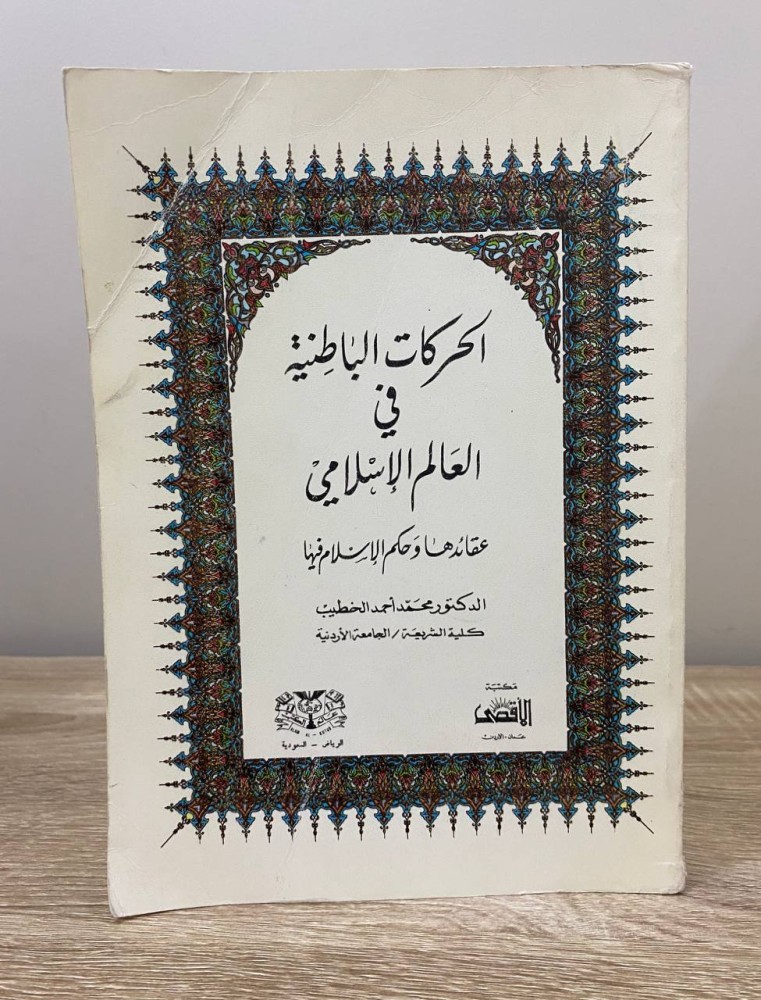 الحركات الباطنية
في
العالم الإسلامي
عقائدها وحكم الإسلام فيها
الدكتور محمد أحمد الخطيب
كلية الشريعة / الجامعة الأردنية
مكتبة
الأقصى
عمان - الأردن
عالم الكتب
الرياض - السعودية